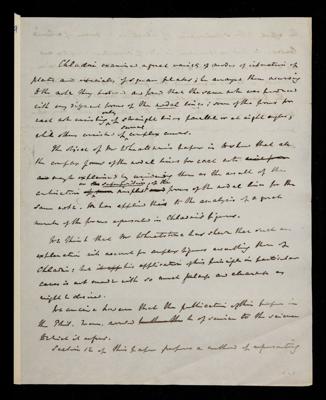 Chladni examined a great variety of modes of vibration of
plates and especially of square plates; he arranged them according
to the note they produced and found that the same note was produced
with very different forms of the nodal lines; some of the forms for
each note consisting only of straight lines parallel or at right angles;
while others consisted of several complex curves.
The object of Mr Wheatstone's paper is to shew that all
the complex forms of the nodal lines for each note
may be explained by considering them as the result of the
or the superposition of the
simplest forms of the nodal lines for the
same note. He has applied this to the analysis of a great
number of the forms represented in Chladni's figures.
We think that Mr Wheatstone has shewn that such an
explanation will account for complex figures resembling those of
Chladni; but the application of his principle in particular
cases is not made with so much fulness and clearness as
might be desired.
We conceive however that the publication of this paper in
the Phil. Trans. would be of service to the science
to which it refers.
Section 12 of this paper proposes a method of representing